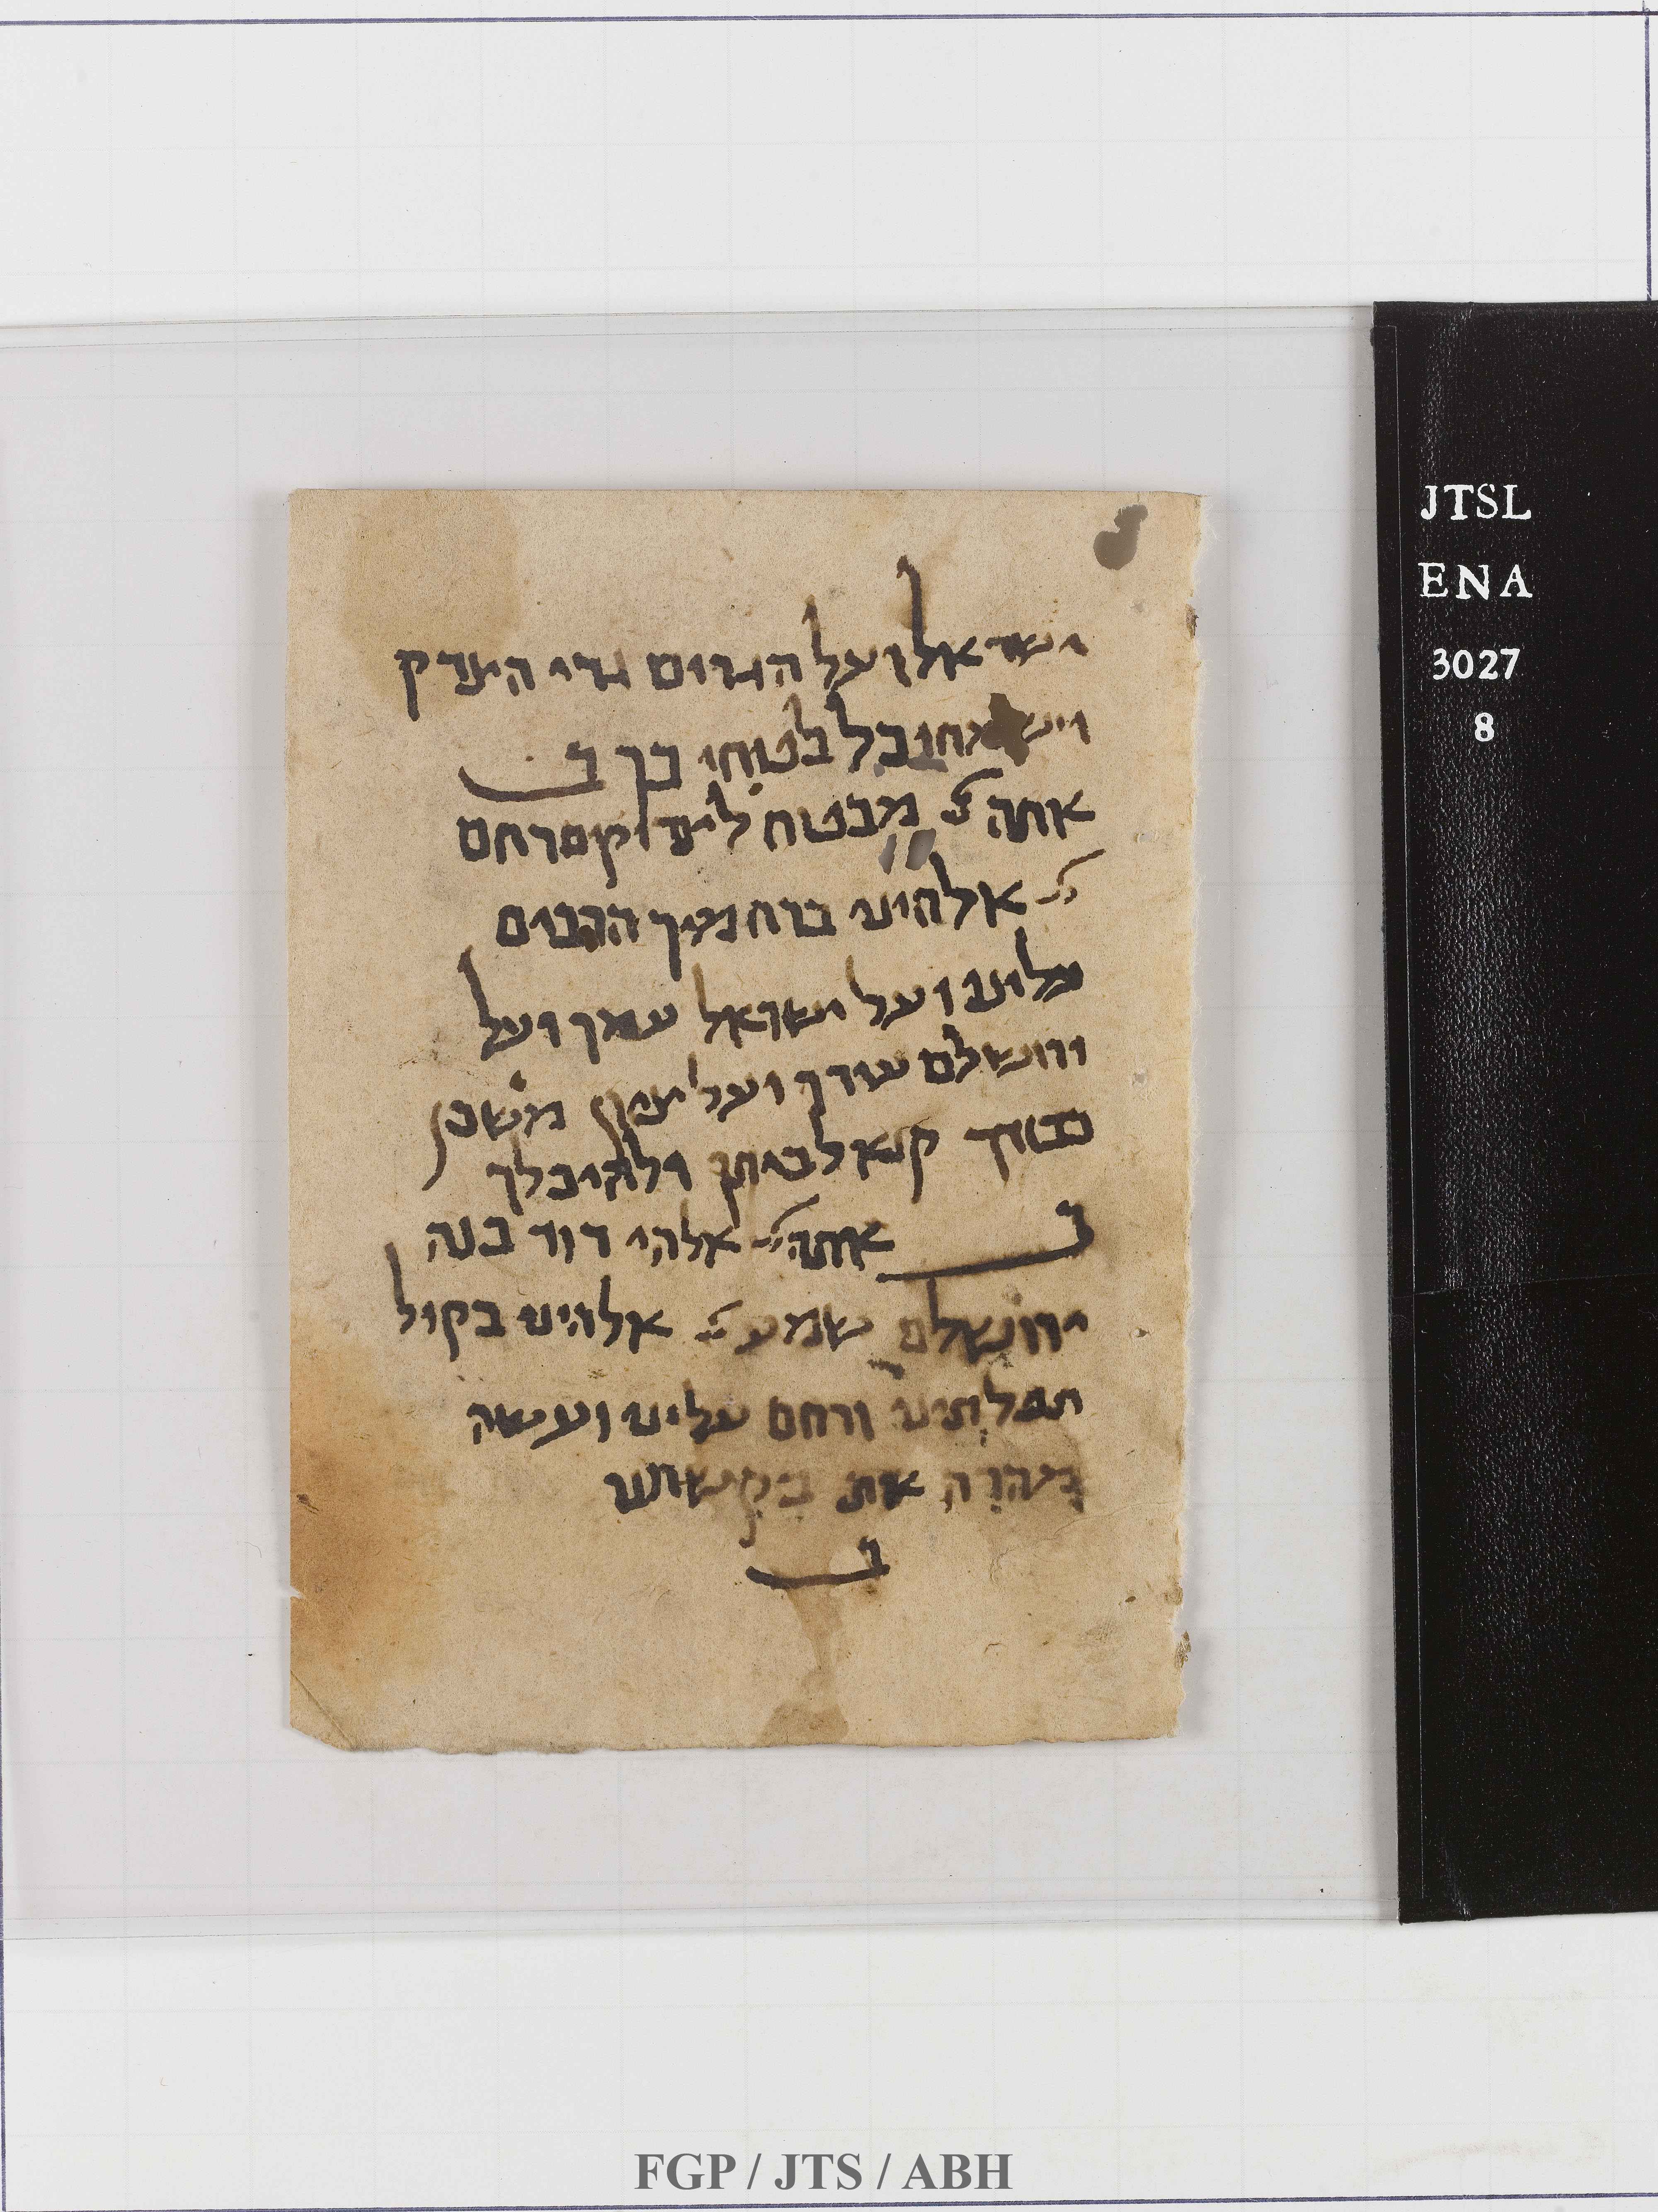 ישראל ועל הגרים גרי הצדק
וישמחו כל בטוחי בך ב
אתה יי מבטח לצדיקם רחם
יי אלהינו ברחמיך הרבים
עלינו ועל ישראל עמך ועל
ירושלם עירך ועל ציון משכן
כבודך קנא לביתך ולהיכלך
ב אתה יי אלהי דוד בנה
ירושלם שמע יי אלהינו בקול
תפלתינו ורחם עלינו ועשה
מהרה את בקשתינו
ב
JTSL
ENA
3027
8
FGP / JTS / ABH